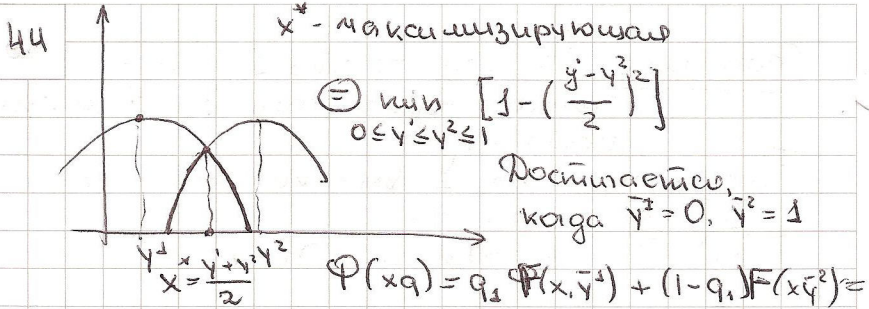 44
x* - максимизирующая
= min [1 - ((y¹ - y²)/2)²]
0 ≤ y¹ ≤ y² ≤ 1
Достигается,
когда ȳ¹ = 0, ȳ² = 1
y¹ x* = (y¹ + y²)/2 y²
Φ(xq) = q₁ F(x, ȳ¹) + (1 - q₁)F(xȳ²) =